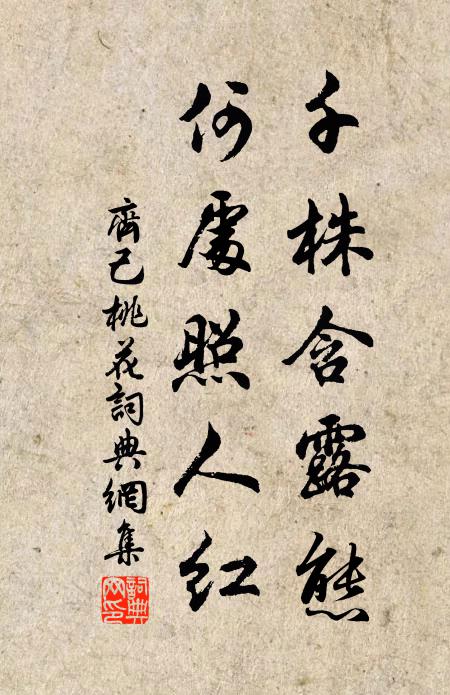 千株含露態
何處照人紅
齊己桃花詞典網集
詞典网印